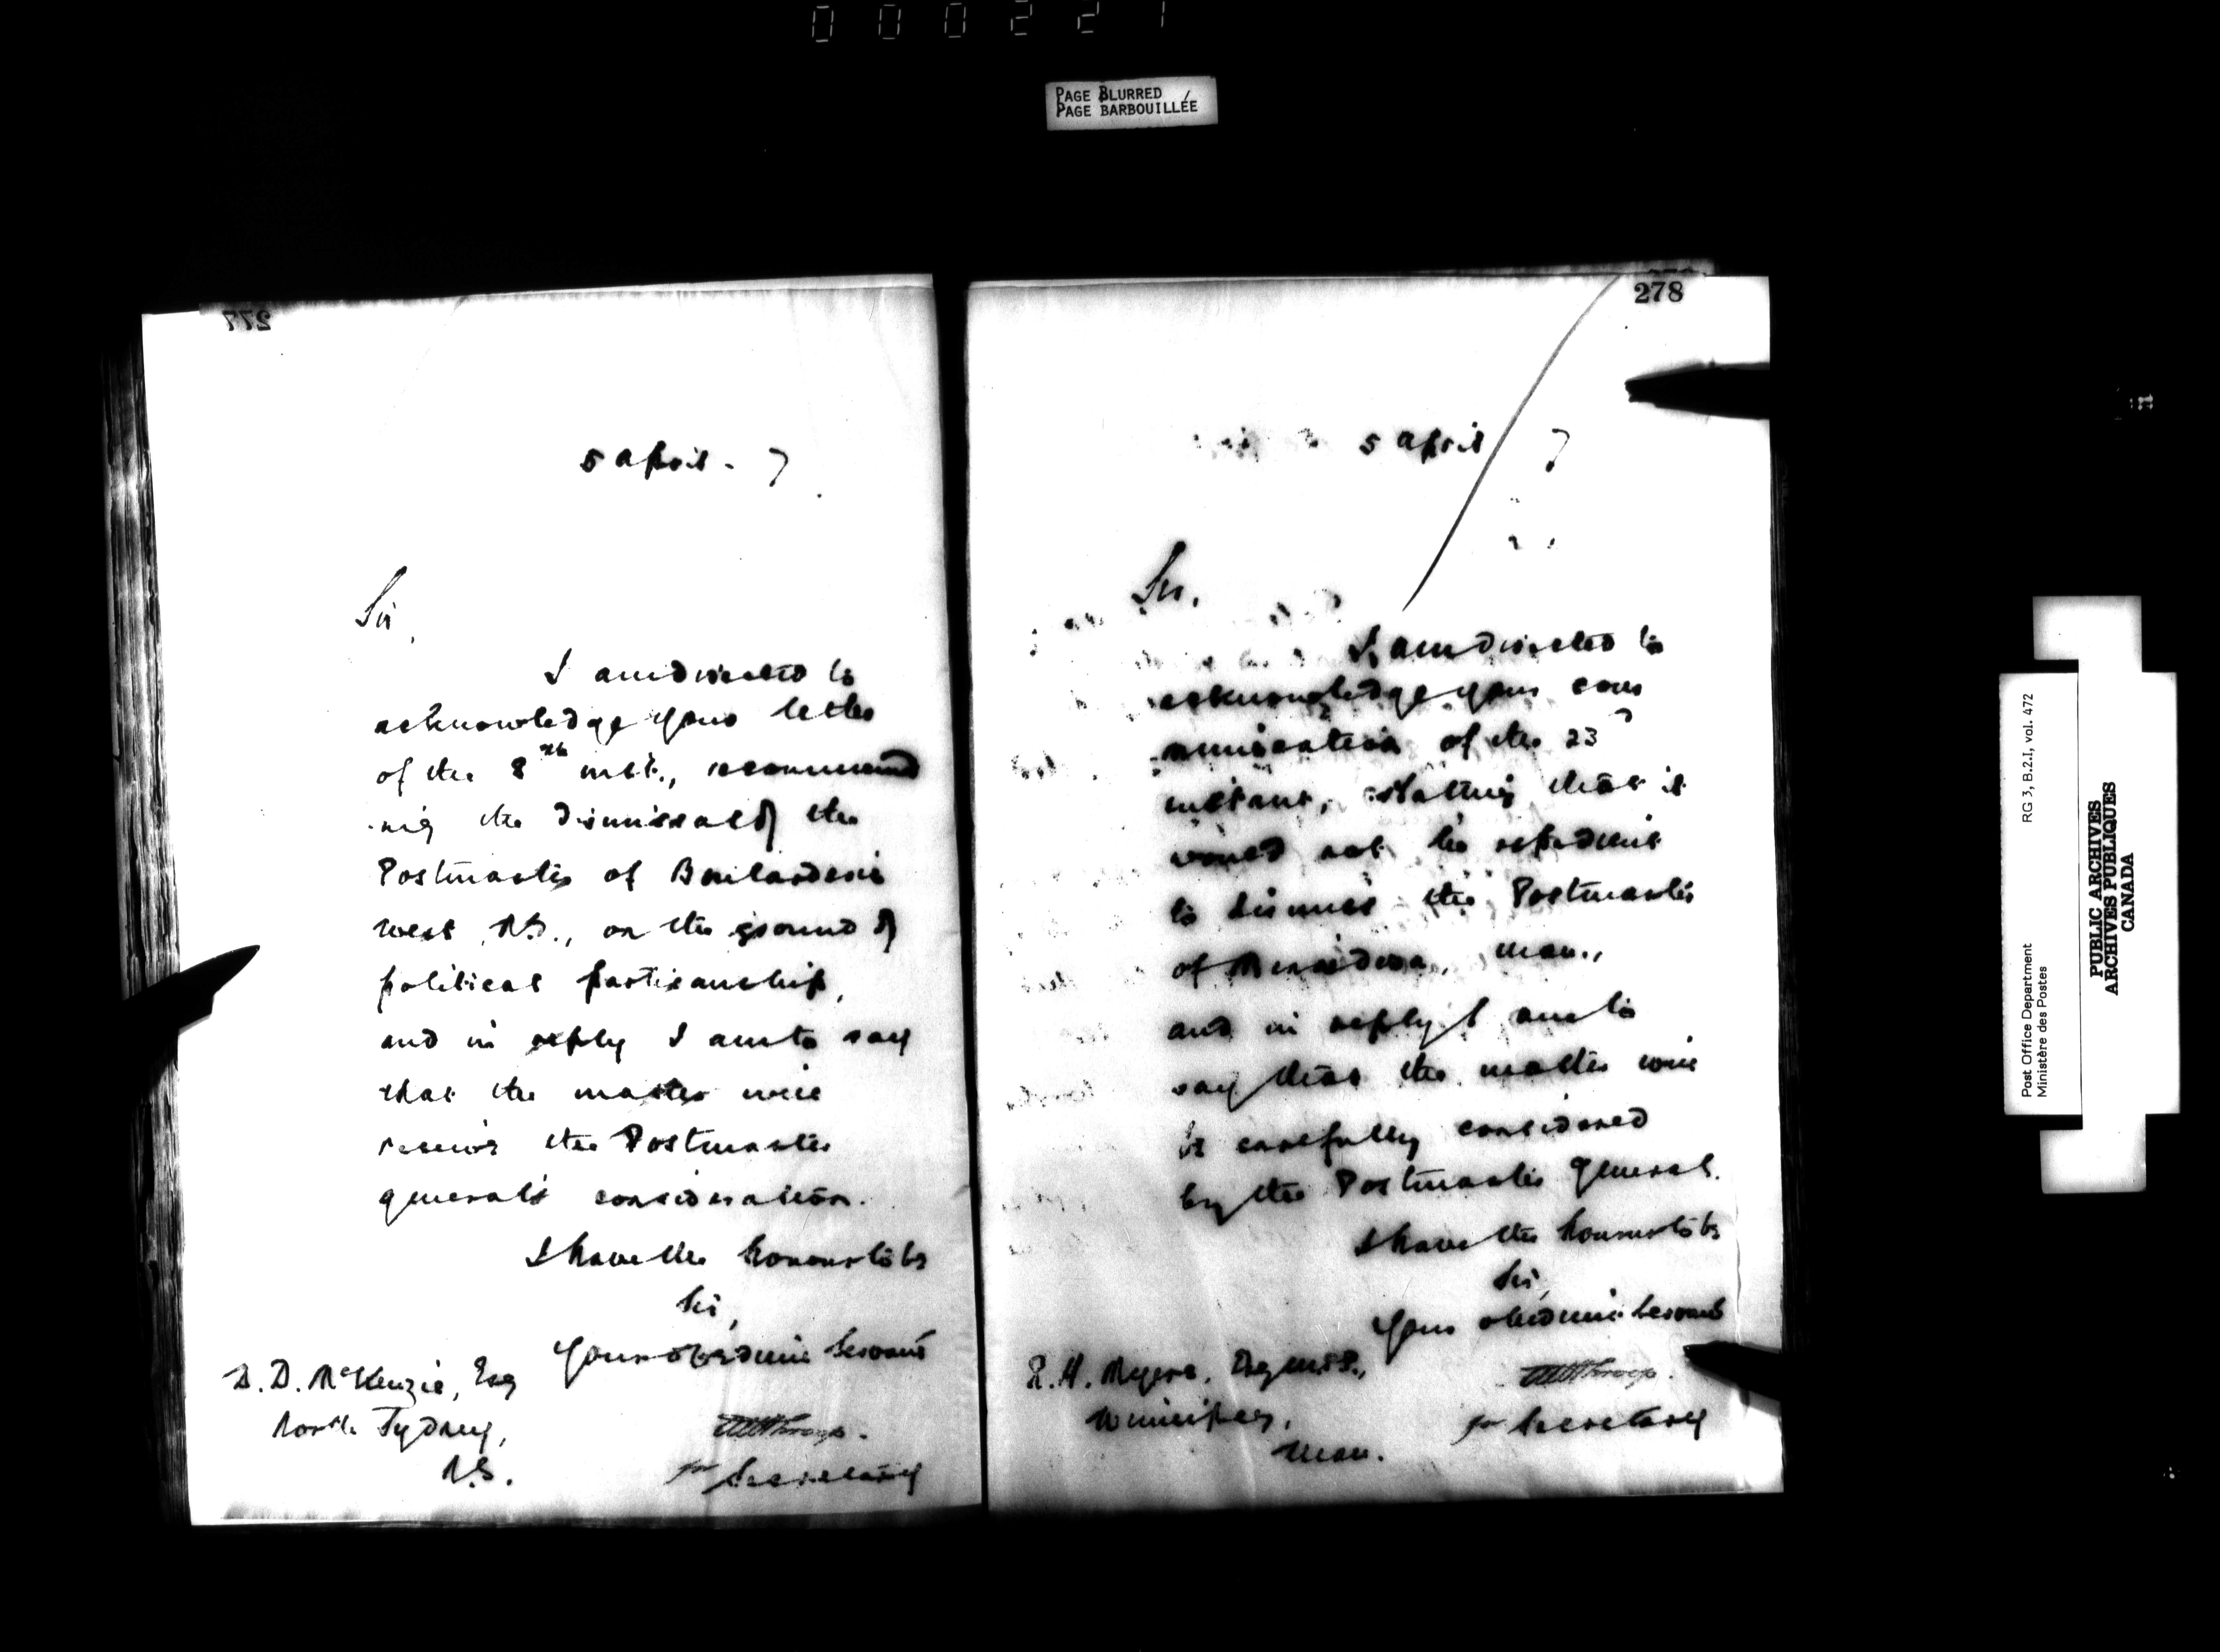 000221
PAGE BLURRED
PAGE BARBOUILLÉE
277
5 April - 7
Sir,
I am directed to
acknowledge your letter
of the 8th inst., recommend
ing the dismissal of the
Postmaster of Boularderie
West N.S., on the ground of
political partisanship,
and in reply I am to say
that the matter will
receive the Postmaster
General's consideration.
I have the honour to be
Sir,
Your obedient Servant
for Secretary
D. D. McKenzie, Esq
North Sydney,
N.S.
278
5 April 7
Sir,
I am directed to
acknowledge your com
munication of the 23d
instant, stating that it
would not be expedient
to dismiss the Postmaster
of Minnedosa, Man.,
and in reply I am to
say that the matter will
be carefully considered
by the Postmaster General.
I have the honour to be
Sir,
Your obedient Servant
for Secretary
R. H. Myers, Esq M.P.P.,
Winnipeg,
Man.
Post Office Department
Ministère des Postes
RG 3, B.2.I, vol. 472
PUBLIC ARCHIVES
ARCHIVES PUBLIQUES
CANADA